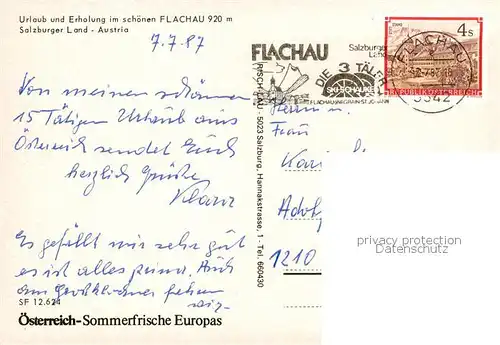 Urlaub und Erholung im schönen FLACHAU 920 m
Salzburger Land - Austria
7.7.87
Von meinen schönen
15 Tätigen Urlaub aus
Österreich sendet Euch
herzlich Grüße
Klaus
Es gefällt mir sehr gut
es ist alles prima. Auch
am Großklarner
wir
SF 12.624
Österreich-Sommerfrische Europas
RISCH-LAU - 5023 Salzburg, Hannakstrasse, 1 - Tel. 660430
FLACHAU
Salzburger
Land
DIE 3 TÄLER
SKISCHAUKEL
FLACHAU WAGRAIN ST. JOHANN
FLACHAU
5542
4 S
REPUBLIK ÖSTERREICH
Herrn u.
Frau
Adolf
1210
protection der Privatsphäre
Datenschutz